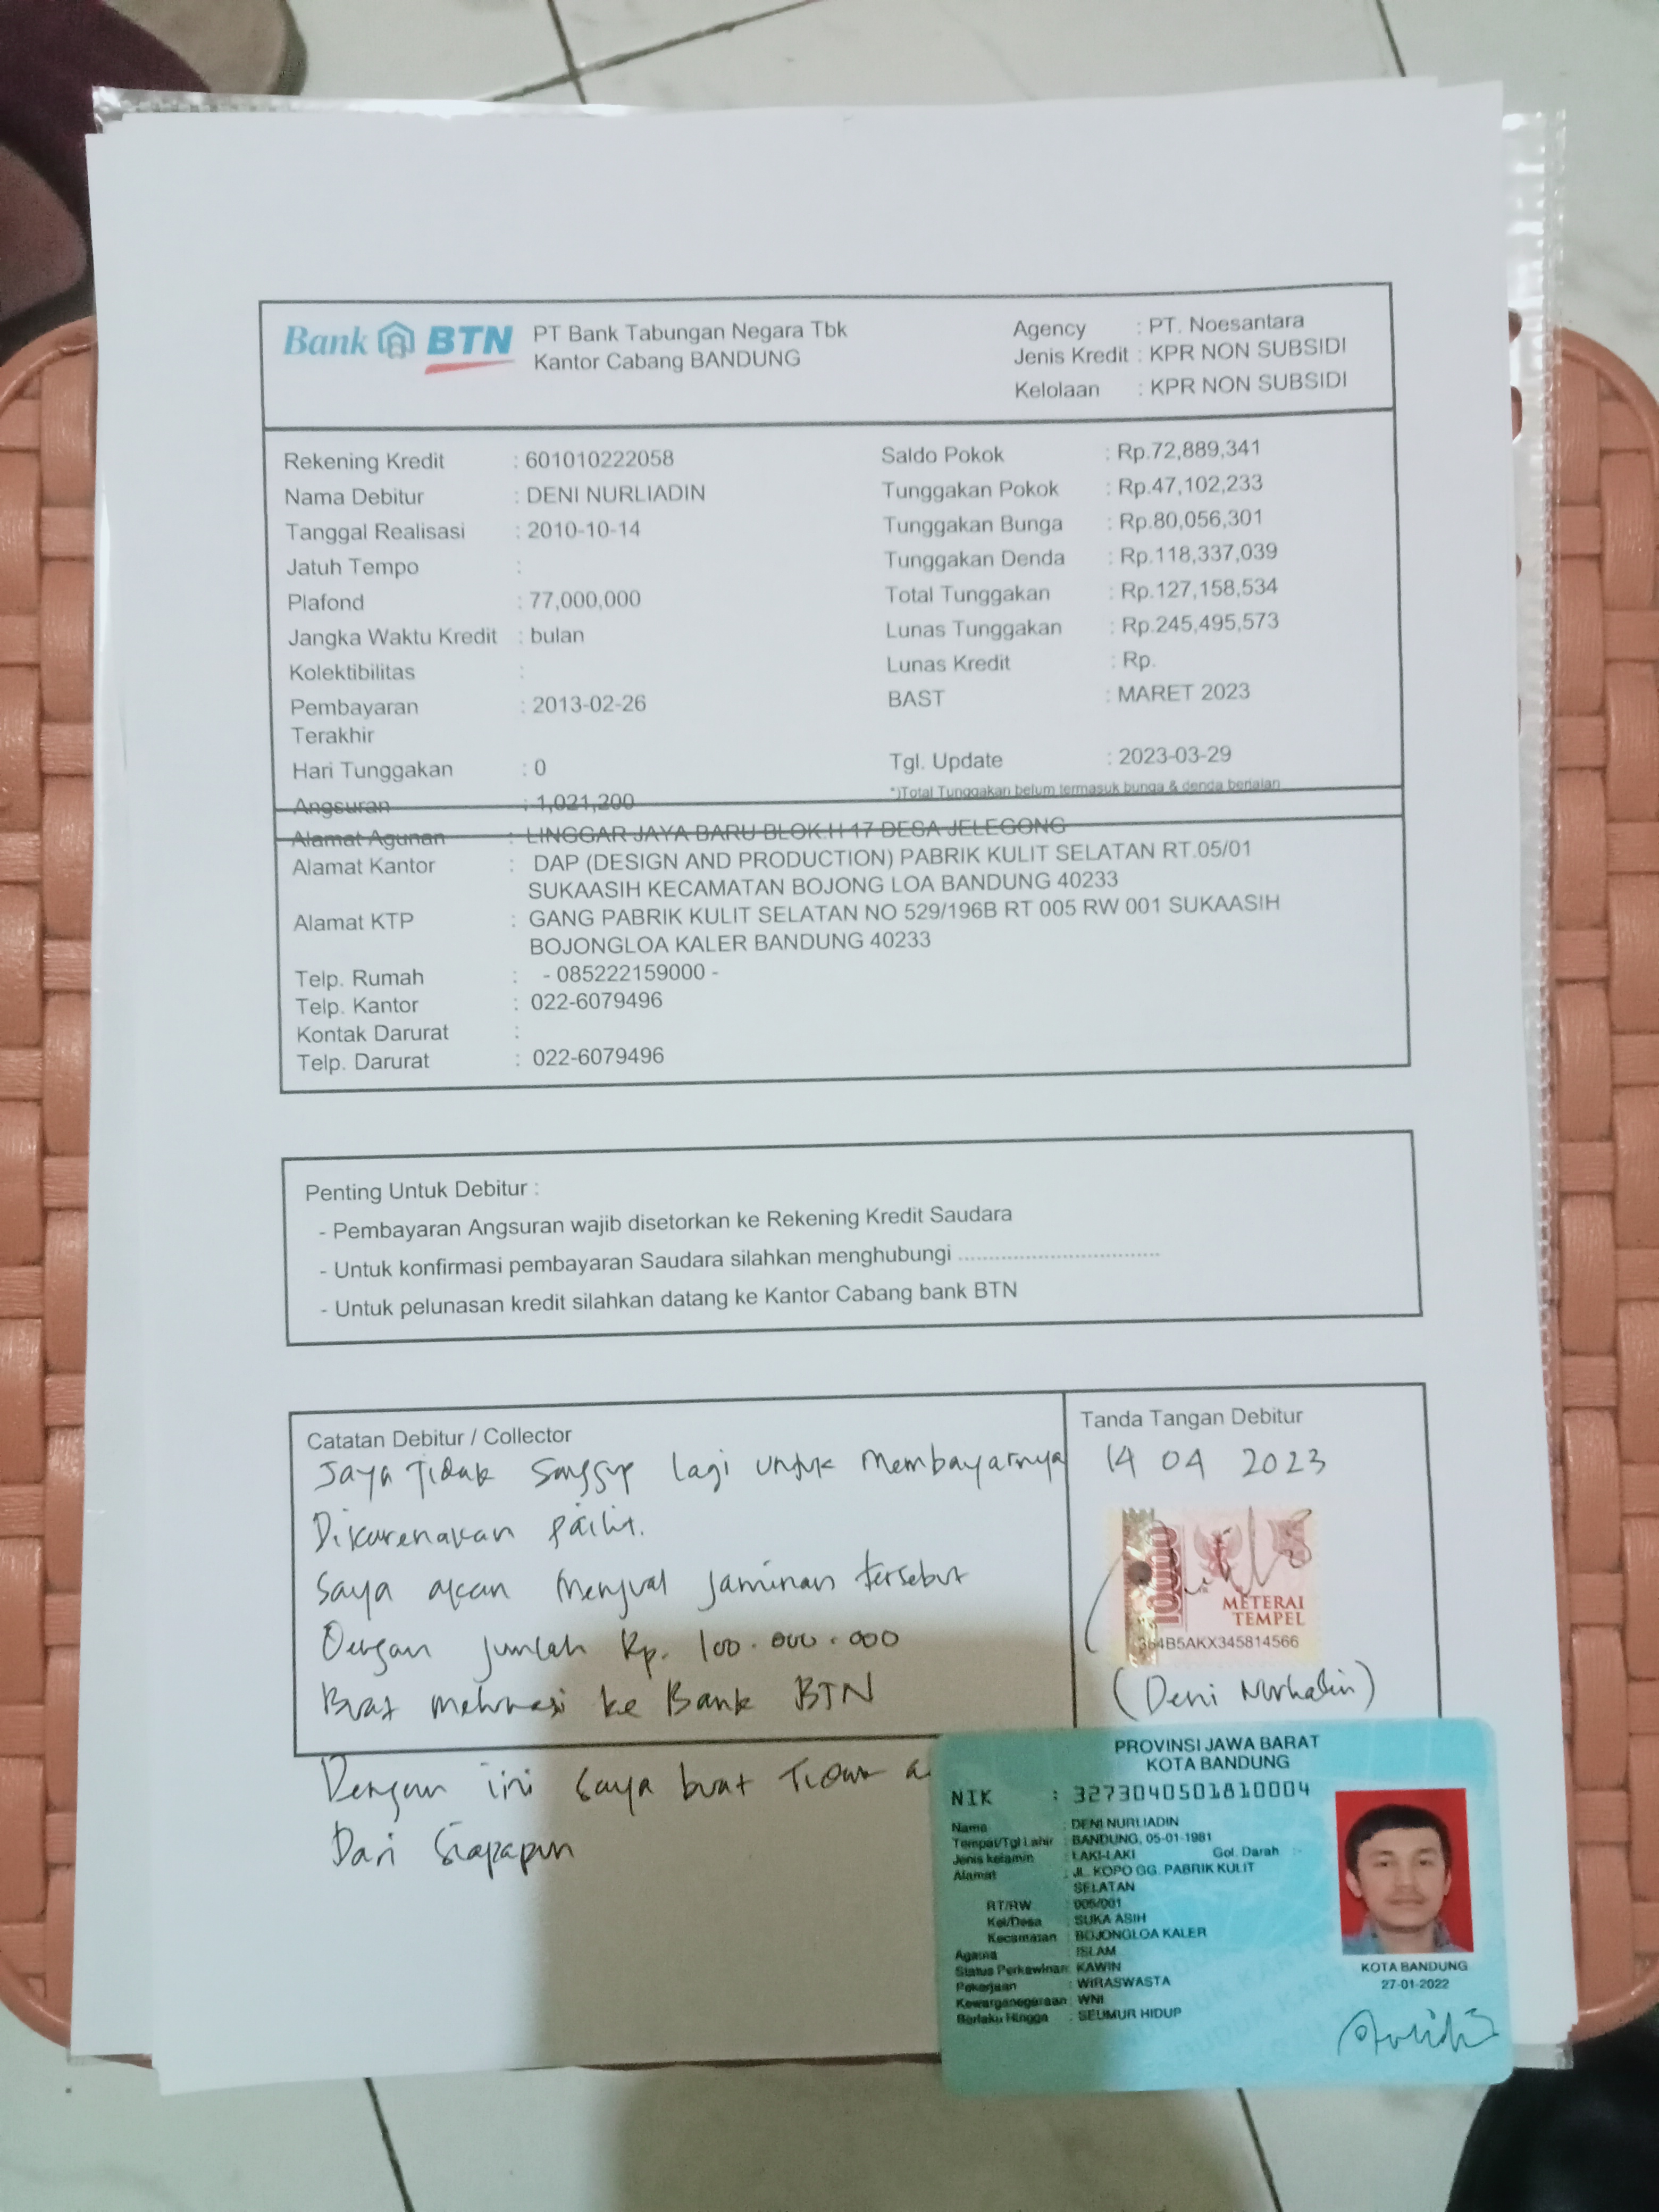 Bank BTN
PT Bank Tabungan Negara Tbk
Kantor Cabang BANDUNG
Agency : PT. Noesantara
Jenis Kredit : KPR NON SUBSIDI
Kelolaan : KPR NON SUBSIDI
Rekening Kredit : 601010222058
Nama Debitur : DENI NURLIADIN
Tanggal Realisasi : 2010-10-14
Jatuh Tempo :
Plafond : 77,000,000
Jangka Waktu Kredit : bulan
Kolektibilitas :
Pembayaran Terakhir : 2013-02-26
Hari Tunggakan : 0
Angsuran : 1,021,200
Saldo Pokok : Rp.72,889,341
Tunggakan Pokok : Rp.47,102,233
Tunggakan Bunga : Rp.80,056,301
Tunggakan Denda : Rp.118,337,039
Total Tunggakan : Rp.127,158,534
Lunas Tunggakan : Rp.245,495,573
Lunas Kredit : Rp.
BAST : MARET 2023
Tgl. Update : 2023-03-29
*)Total Tunggakan belum termasuk bunga & denda berjalan
Alamat Agunan : LINGGAR JAYA BARU BLOK.H 17 DESA JELEGONG
Alamat Kantor : DAP (DESIGN AND PRODUCTION) PABRIK KULIT SELATAN RT.05/01
SUKAASIH KECAMATAN BOJONG LOA BANDUNG 40233
Alamat KTP : GANG PABRIK KULIT SELATAN NO 529/196B RT 005 RW 001 SUKAASIH
BOJONGLOA KALER BANDUNG 40233
Telp. Rumah : - 085222159000 -
Telp. Kantor : 022-6079496
Kontak Darurat :
Telp. Darurat : 022-6079496
Penting Untuk Debitur :
- Pembayaran Angsuran wajib disetorkan ke Rekening Kredit Saudara
- Untuk konfirmasi pembayaran Saudara silahkan menghubungi ..................................
- Untuk pelunasan kredit silahkan datang ke Kantor Cabang bank BTN
Catatan Debitur / Collector
Saya Tidak Sanggup lagi untuk Membayarnya
Dikarenakan pailit.
Saya akan Menjual Jaminan tersebut
Dengan Jumlah Rp. 100.000.000
Buat melunasi ke Bank BTN
Dengan ini Saya buat
Dari Siapapun
Tanda Tangan Debitur
14 04 2023
10000
METERAI
TEMPEL
4B5AKX345814566
(Deni Nurliadin)
PROVINSI JAWA BARAT
KOTA BANDUNG
NIK : 3273040501810004
Nama : DENI NURLIADIN
Tempat/Tgl Lahir : BANDUNG, 05-01-1981
Jenis kelamin : LAKI-LAKI Gol. Darah : -
Alamat : JL. KOPO GG. PABRIK KULIT
SELATAN
RT/RW : 005/001
Kel/Desa : SUKA ASIH
Kecamatan : BOJONGLOA KALER
Agama : ISLAM
Status Perkawinan: KAWIN
Pekerjaan : WIRASWASTA
Kewarganegaraan: WNI
Berlaku Hingga : SEUMUR HIDUP
KOTA BANDUNG
27-01-2022